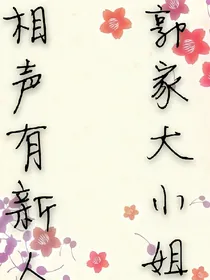 郭家大小姐
相声有新人